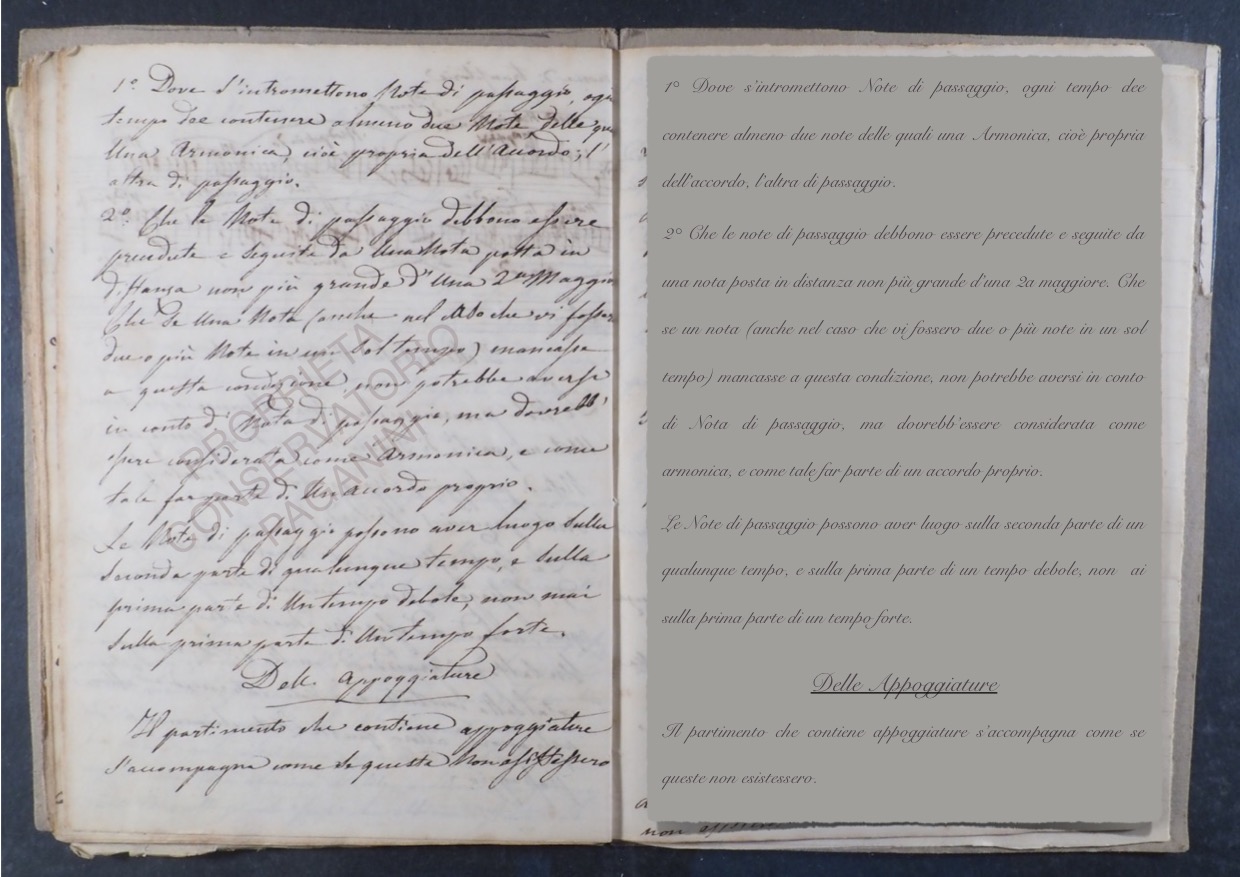 1º Dove s'intromettono Note di passaggio, ogni
tempo dee contenere almeno due Note delle qu
Una Armonica, cioè propria dell'Accordo; l'
altra di passaggio.
2º Che le Note di passaggio debbono essere
precedute e seguite da Una Nota posta in
distanza non più grande d'Una 2ª Maggio
Che se Una Nota (anche nel Caso che vi fossero
due o più Note in un Sol tempo) mancasse
a questa condizione, non potrebbe aversi
in conto di Nota di passaggio, ma dovrebb'
essere considerata come Armonica, e come
tale far parte di Un accordo proprio.
Le Note di passaggio possono aver luogo sulla
Seconda parte di qualunque tempo, e sulla
prima parte di Un tempo debole, non mai
sulla prima parte di Un tempo forte.
Delle Appoggiature
Il partimento che contiene appoggiature
s'accompagna come se queste Non esistessero
PROPRIETA
CONSERVATORIO
PAGANINI
1º Dove s'intromettono Note di passaggio, ogni tempo dee
contenere almeno due note delle quali una Armonica, cioè propria
dell'accordo, l'altra di passaggio.
2º Che le note di passaggio debbono essere precedute e seguite da
una nota posta in distanza non più grande d'una 2a maggiore. Che
se un nota (anche nel caso che vi fossero due o più note in un sol
tempo) mancasse a questa condizione, non potrebbe aversi in conto
di Nota di passaggio, ma dovrebb'essere considerata come
armonica, e come tale far parte di un accordo proprio.
Le Note di passaggio possono aver luogo sulla seconda parte di un
qualunque tempo, e sulla prima parte di un tempo debole, non ai
sulla prima parte di un tempo forte.
Delle Appoggiature
Il partimento che contiene appoggiature s'accompagna come se
queste non esistessero.
non